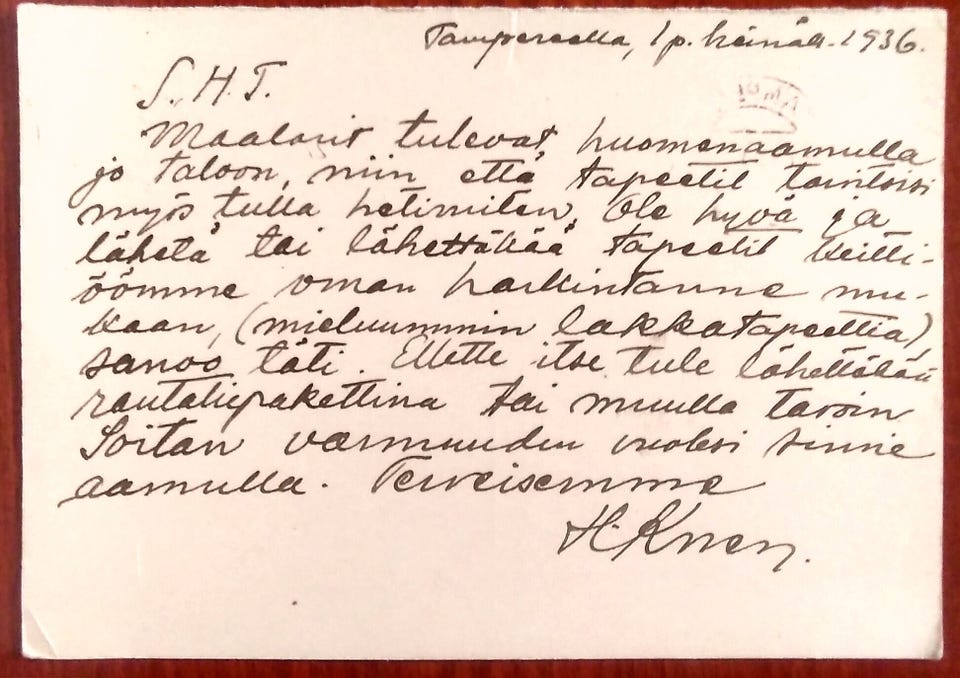 Tampereella, 1 p. heinäk. 1936.
S. H. T.
Maalarit tulevat huomenaamulla
jo taloon, niin että tapeetit tarvitsisi
myös tulla hetimiten. Ole hyvä ja
lähetä tai lähettäkää tapeetit keitti-
öömme oman harkintanne mu-
kaan, (mieluummin lakkatapeettia)
sanoo täti. Ellette itse tule lähettäkää
rautatiepakettina tai muulla tavoin
Soitan varmuuden vuoksi sinne
aamulla. Terveisemme